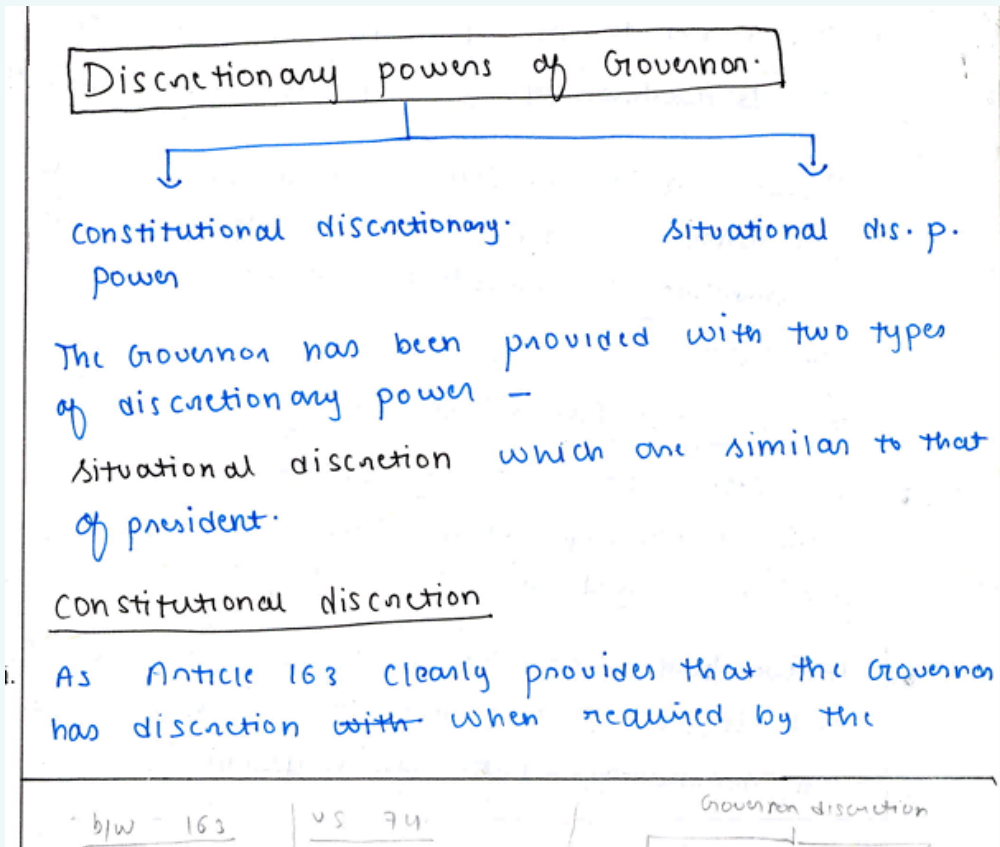 Discretionary powers of Governor.
constitutional discretionary. situational dis. p.
power
The Governor has been provided with two types
of discretionary power –
situational discretion which are similar to that
of president.
constitutional discretion
i. As Article 163 clearly provides that the Governor
has discretion with when required by the
Governor discretion
b/w 163 | vs 74